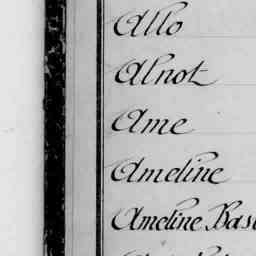 Allo
Alnot
Ame
Ameline
Ameline Bas